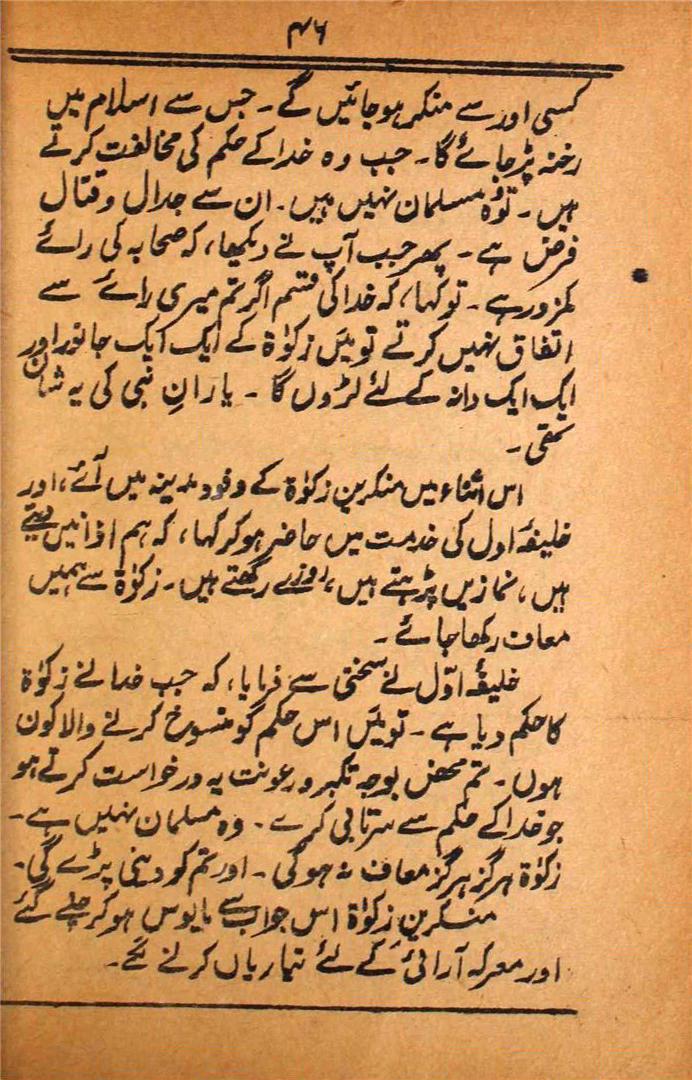 ۴۶
کسی اور سے منکر ہو جائیں گے۔ جس سے اسلام میں
رخنہ پڑ جائے گا۔ جب وہ خدا کے حکم کی مخالفت کرتے
ہیں۔ تو وہ مسلمان نہیں ہیں۔ ان سے جدال و قتال
فرض ہے۔ پھر جب آپ نے دیکھا، کہ صحابہ کی رائے
کمزور ہے۔ تو کہا، کہ خدا کی قسم اگر تم میری رائے سے
اتفاق نہیں کرتے تو میَں زکوٰۃ کے ایک ایک جانور اور
ایک ایک دانہ کے لئے لڑوں گا ۔ یارانِ نبی کی یہ شان
تھی ۔
اس اثناء میں منکرینِ زکوٰۃ کے وفود مدینہ میں آئے، اور
خلیفۂ اول کی خدمت میں حاضر ہو کر کہا، کہ ہم اذانیں دیتے
ہیں، نمازیں پڑہتے ہیں، روزے رکھتے ہیں۔ زکوٰۃ سے ہمیں
معاف رکھا جائے ۔
خلیفۂ اوّل نے سختی سے فرمایا، کہ جب خدا نے زکوٰۃ
کا حکم دیا ہے ۔ تو میَں اس حکم کو منسوخ کرنے والا کون
ہوں۔ تم محض بوجہ تکبر و رعونت یہ درخواست کرتے ہو
جو خدا کے حکم سے سرتابی کرے ۔ وہ مسلمان نہیں ہے۔
زکوٰۃ ہرگز ہرگز معاف نہ ہوگی ۔ اور تم کو دینی پڑے گی۔
منکرینِ زکوٰۃ اس جواب سے مایوس ہو کر چلے گئے
اور معرکہ آرائی کے لئے تیاریاں کرنے لگے۔